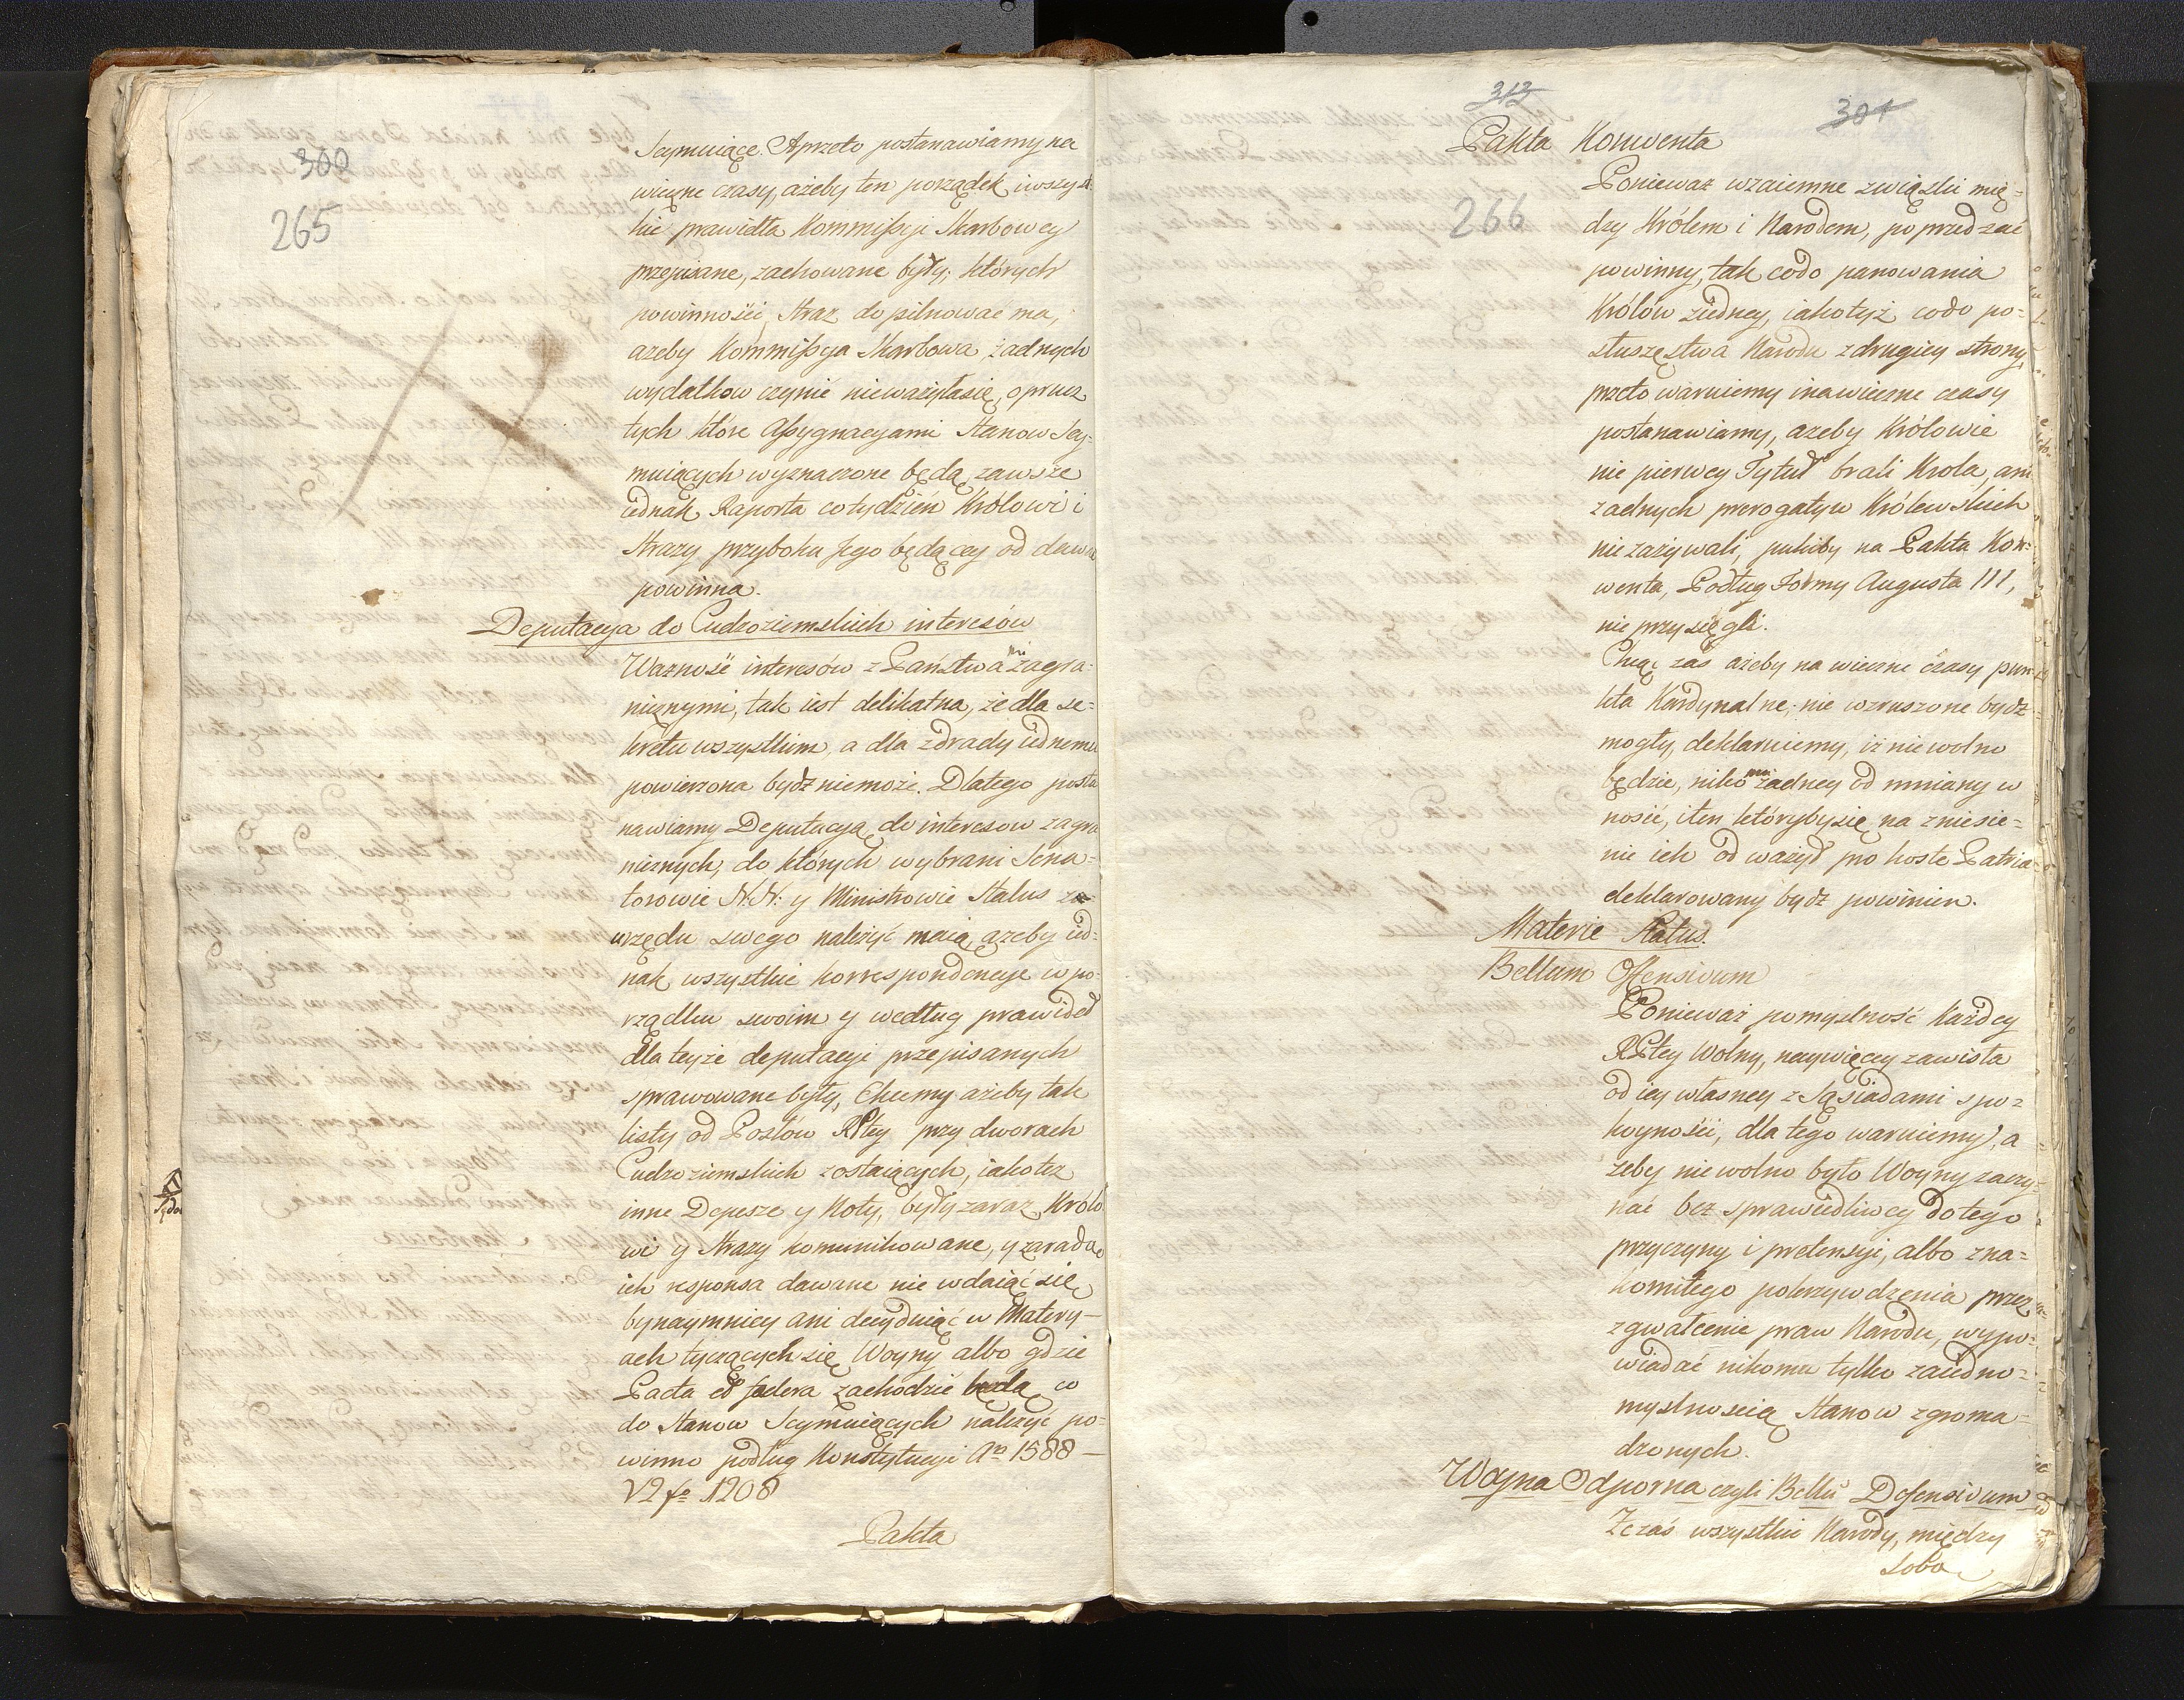 300
265
Seymuiące. Aprzeto postanawiamy na
wieczne czasy, ażeby ten porządek, i wszyst-
kie prawidła Kommißyi Skarbowey
przepisane, zachowane były, których
powinności Straż dopilnować ma,
ażeby Kommißya Skarbowa żadnych
wydatkow czynić nieważyłasię, oprucz
tych które Aßygnacyami Stanow Sey-
muiących wyznaczone będą, zawsze
iednak Raporta cotydzień Królowi i
Straży przyboku Jego będącey oddawać
powinna.
Deputacya do Cudzoziemskich interesów
Ważność interesów z Państwami zagra=
nicznymi, tak iest delikatna, że dla se=
kretu wszystkim, a dla zdrady iednemu
powierzona bydź niemoże. Dlatego posta
nawiamy Deputacyą do interesow zagra
nicznych, do których wybrani Sena=
torowie N: N: y Ministrowie Status z
urzędu swego należyć maią, ażeby ied=
nak wszystkie korrespondencye w po-
rządku swoim y według prawideł
dla teyże deputacyi przepisanych
sprawowane były, Chcemy ażeby tak
listy od Posłow RPtey przy dworach
Cudzoziemskich zostaiących, iakoteż
inne Depesze y Noty, były zaraz Królo
wi y Straży komunikowane, y zaradą
ich responsa dawane nie wdaiąc się
bynaymniey ani decyduiąc w Matery-
ach tyczących się Woyny albo gdzie
Pacta et fædera zachodzić będą co
do Stanow Seymuiących należyć po=
winno podług Konstytucyi Ao 1588 -
V2 fo 1208
Pakta
313
301
266
Pakta Konwenta
Ponieważ wzaiemne związki mię=
dzy Królem i Narodem, poprzedzać
powinny, tak codo panowania
Królów ziedney, iakoteż codo po=
słuszęstwa Narodu z drugiey strony,
przeto waruiemy inawieczne czasy
postanawiamy, ażeby Królowie
nie pierwey Tytuł brali Krola, ani
żadnych prerogatyw Królewskich
nie zażywali, pukiby na Pakta Kon=
wenta, Podług Formy Augusta III,
nie przysięgli.
Chcąc zaś ażeby na wieczne czasy pun-
kta Kardynalne, nie wzruszone bydź
mogły, deklaruiemy, iż nie wolno
będzie, nikomu żadney odmmiany w
nosić, i ten któryby się na zniesie=
nie ich odważył pro hoste Patriæ
deklarowany bydź powinien.
Materie Status.
Bellum Offensivum
Ponieważ pomyslność Każdey
RPtey Wolny, naywięcey zawisła
od iey własney z Sąsiadami spo=
koyności, dla tego waruiemy, a
żeby nie wolno było Woyny zaczy-
nać bez sprawiedliwey do tego
przyczyny i pretensyi, albo zna=
komitego pokrzywdzenia przez
zgwałcenie praw Narodu, wypo-
wiadać nikomu tylko zaiedno=
myslnością Stanow zgroma=
dzonych.
Woyna Odporna czyli Bellu Defensivum
Że zaś wszystkie Narody, między
Sobą